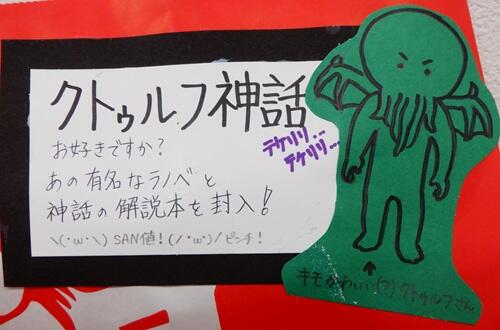 クトゥルフ神話
お好きですか?
テケリリ...
テケリリ...
あの有名なラノベと
神話の解説本を封入!
\(・ω・\)SAN値!(/・ω・)/ピンチ!
↑
キモかわいい(?)クトゥルフさん